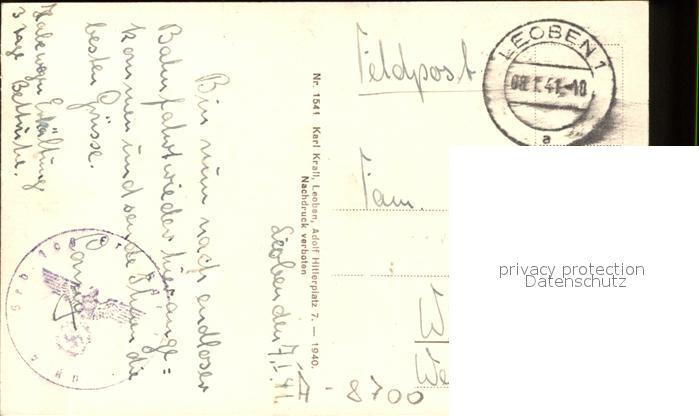 Leoben den 7. I. 41.
Bin nun nach endloser
Bahnfahrt wieder hier ange=
kommen und sende Ihnen die
besten Grüsse.
Habe wegen Erkältung
3 Tage Bettruhe.
Nr. 1541 Karl Krall, Leoben, Adolf Hitlerplatz 7. — 1940.
Nachdruck verboten
Feldpost
LEOBEN 1
08.1.41.-18
a
Fam.
W
We
- 8700
privacy protection
Datenschutz